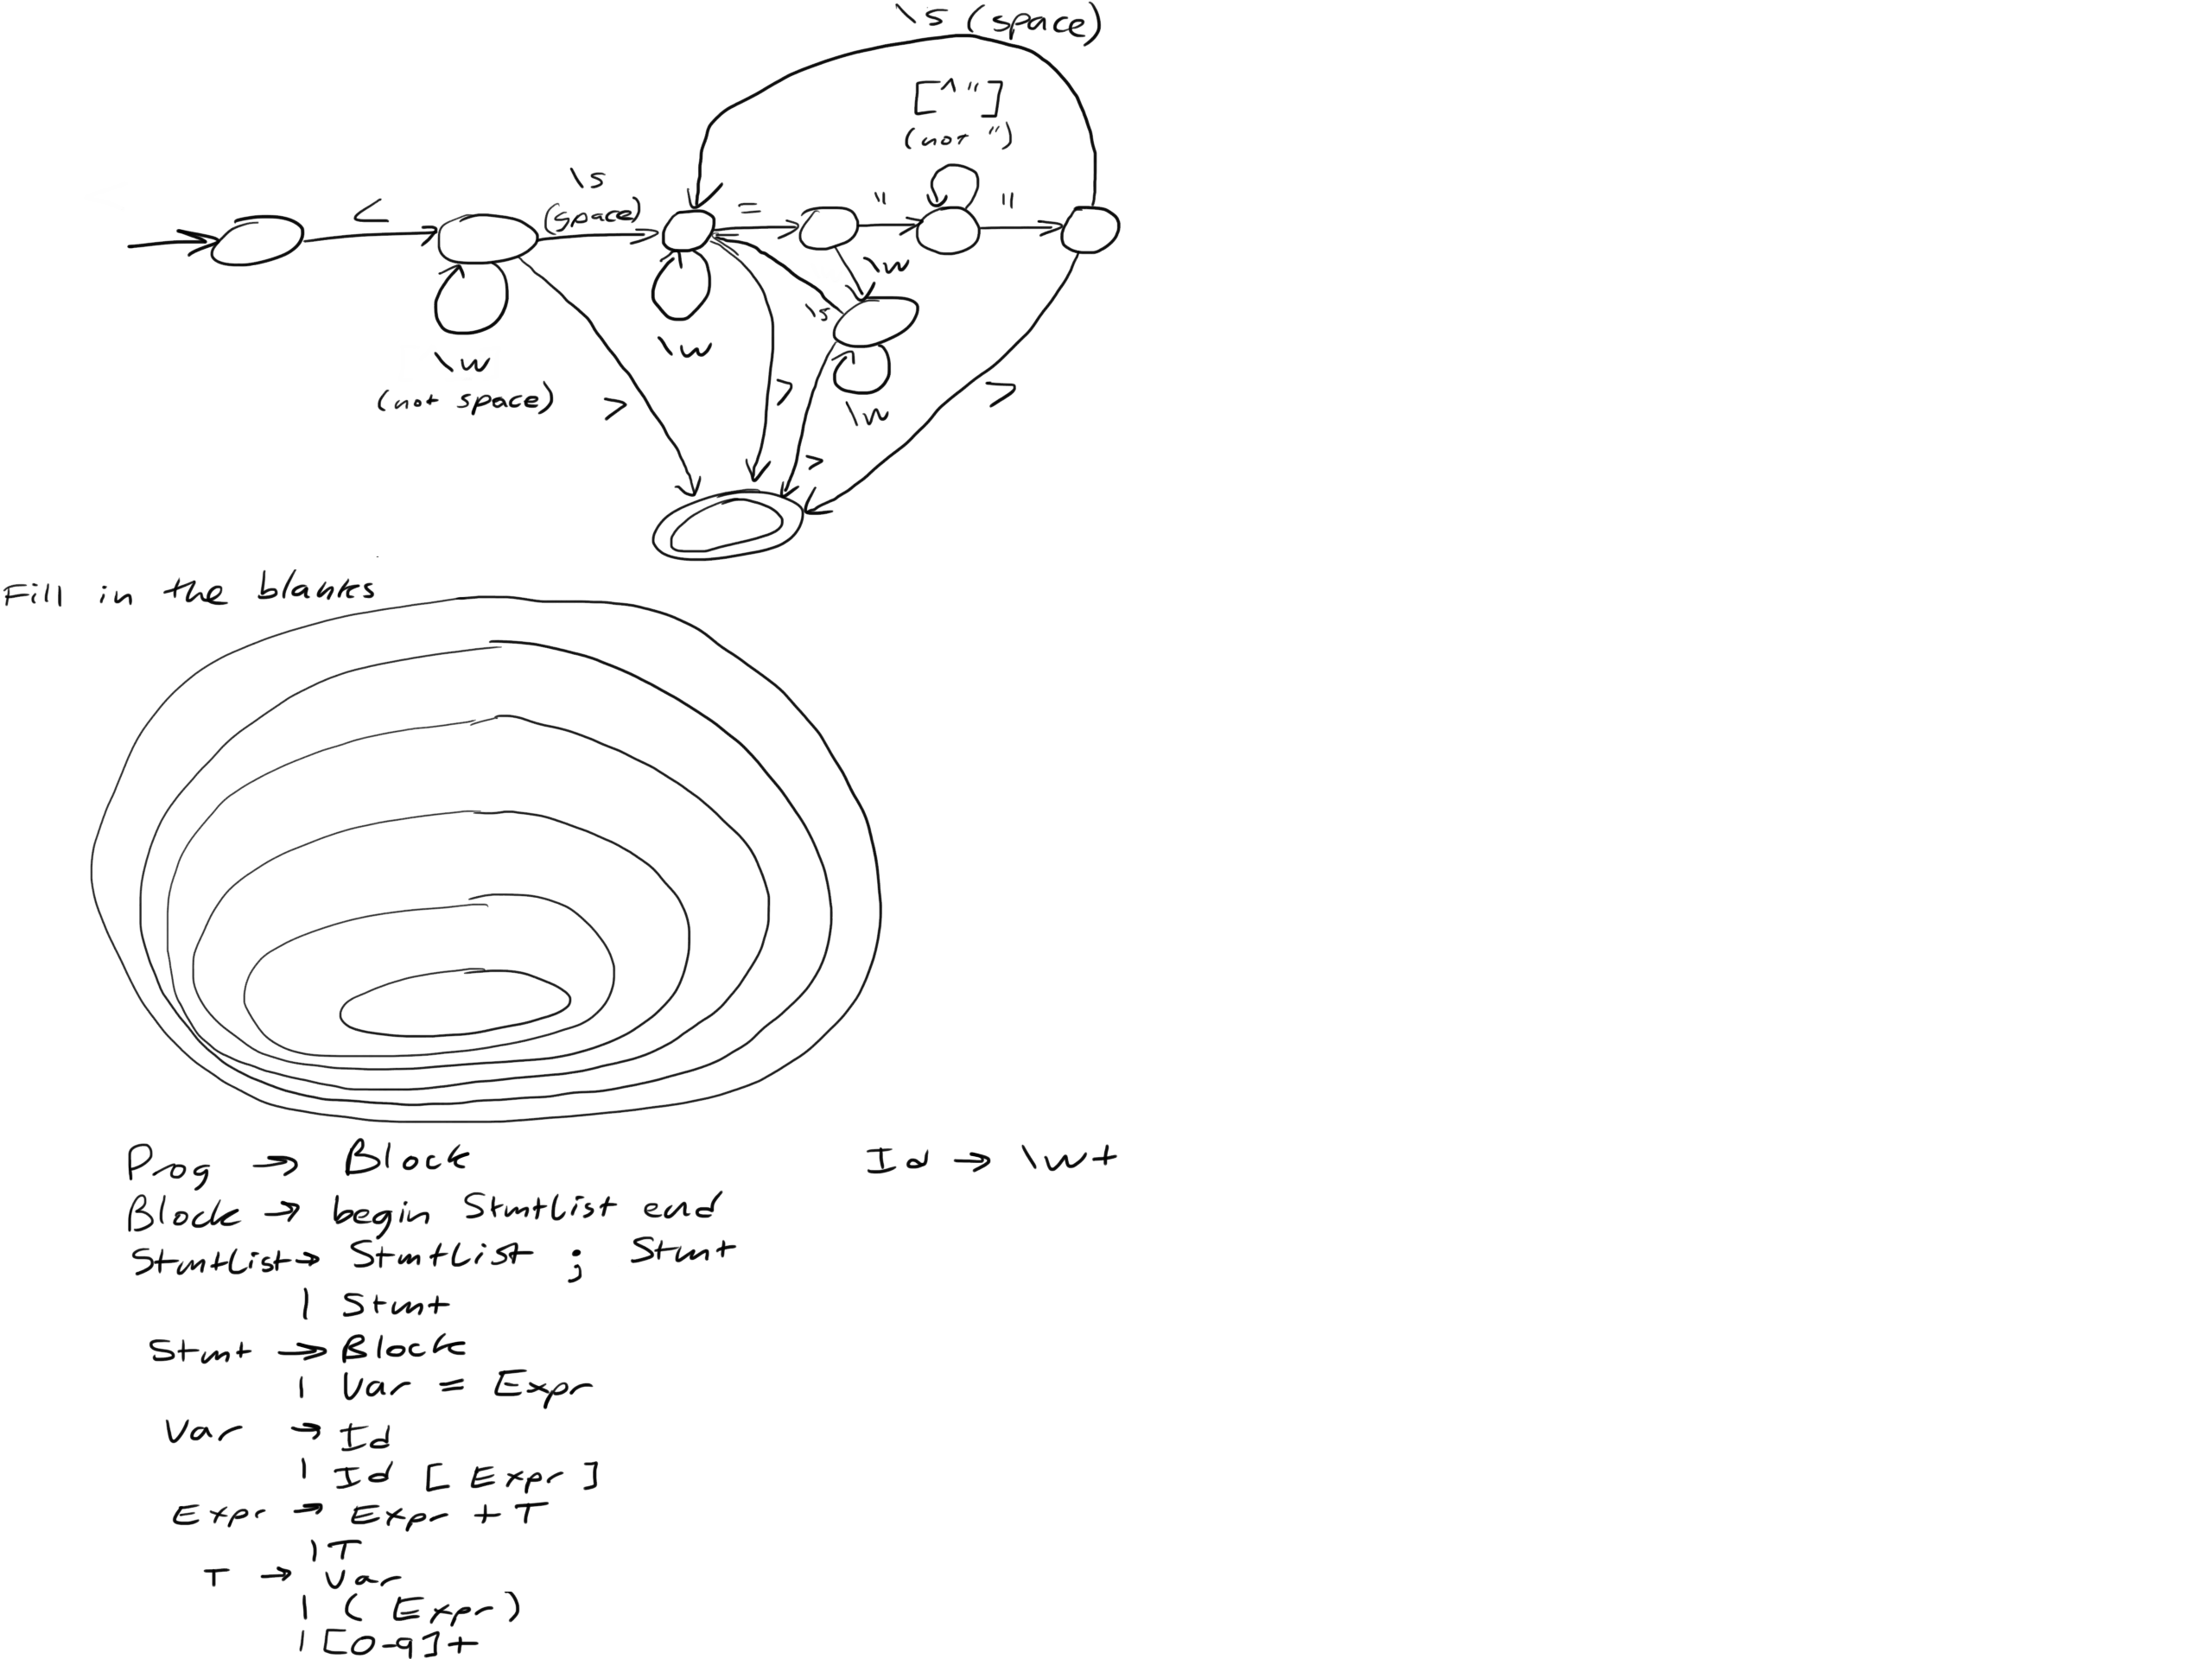 \s (space)
[^"]
(not ")
\s
(space)
<
=
"
"
\w
\s
\w
(not space)
\w
\w
>
>
>
>
Fill in the blanks
Prog → Block
Id → \w+
Block → begin StmtList end
StmtList → StmtList ; Stmt
| Stmt
Stmt → Block
| Var = Expr
Var → Id
| Id [ Expr ]
Expr → Expr + T
| T
T → Var
| ( Expr )
| [0-9]+